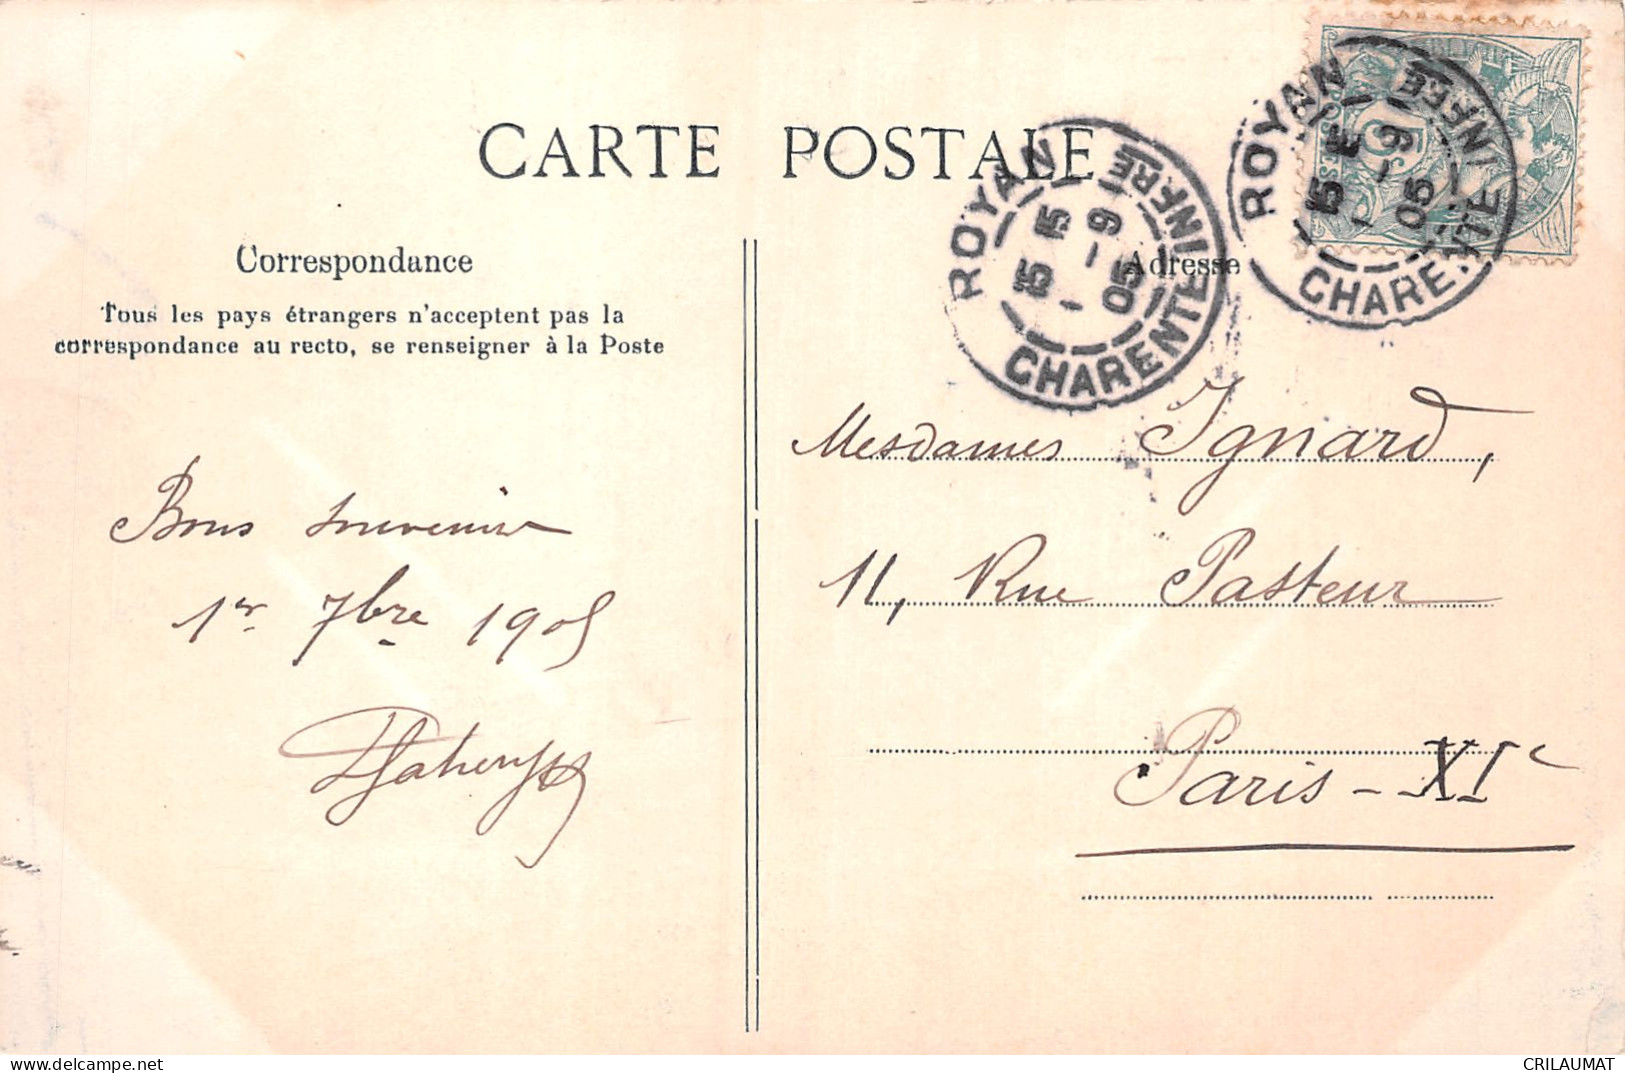 CARTE POSTALE
ROYAN
CHARENTE INFRE
15 E
1 - 9
05
ROYAN
CHARENTE INFRE
15 15
1 - 9
05
Correspondance
Adresse
Tous les pays étrangers n'acceptent pas la
correspondance au recto, se renseigner à la Poste
Mesdames Ignard,
11, Rue Pasteur
Paris - XIe
Bons souvenirs
1er 7bre 1905
delcampe.net
CRILAUMAT